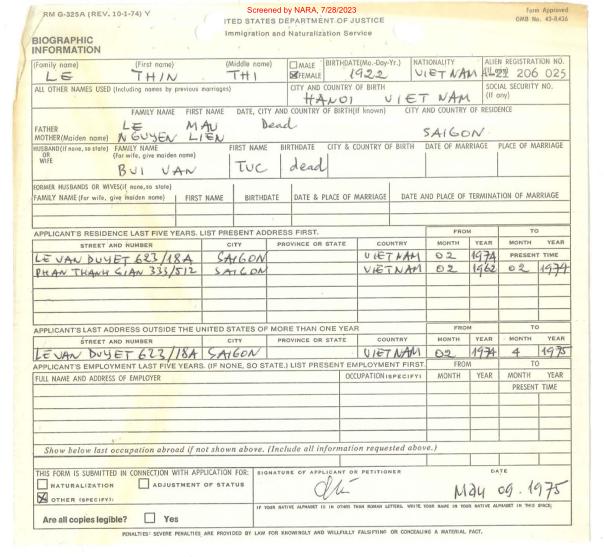 Screened by NARA, 7/28/2023
RM G-325A (REV. 10-1-74) Y
Form Approved
OMB No. 43-R436
ITED STATES DEPARTMENT OF JUSTICE
Immigration and Naturalization Service
BIOGRAPHIC
INFORMATION
(Family name) (First name) (Middle name) MALE FEMALE BIRTHDATE(Mo.-Day-Yr.) NATIONALITY ALIEN REGISTRATION NO.
LE THIN THI 1922 VIETNAM 206 025
ALL OTHER NAMES USED (Including names by previous marriages) CITY AND COUNTRY OF BIRTH SOCIAL SECURITY NO. (If any)
HANOI VIET NAM
FAMILY NAME FIRST NAME DATE, CITY AND COUNTRY OF BIRTH(If known) CITY AND COUNTRY OF RESIDENCE
FATHER LE MAU Dead
MOTHER(Maiden name) NGUYEN LIEN SAIGON
HUSBAND(If none, so state) OR WIFE FAMILY NAME (For wife, give maiden name) FIRST NAME BIRTHDATE CITY & COUNTRY OF BIRTH DATE OF MARRIAGE PLACE OF MARRIAGE
BUI VAN TUC dead
FORMER HUSBANDS OR WIVES(if none, so state)
FAMILY NAME (For wife, give maiden name) FIRST NAME BIRTHDATE DATE & PLACE OF MARRIAGE DATE AND PLACE OF TERMINATION OF MARRIAGE
APPLICANT'S RESIDENCE LAST FIVE YEARS. LIST PRESENT ADDRESS FIRST. FROM TO
STREET AND NUMBER CITY PROVINCE OR STATE COUNTRY MONTH YEAR MONTH YEAR
LE VAN DUYET 623/18A SAIGON VIETNAM 02 1974 PRESENT TIME
PHAN THANH GIAN 333/512 SAIGON VIETNAM 02 1962 02 1974
APPLICANT'S LAST ADDRESS OUTSIDE THE UNITED STATES OF MORE THAN ONE YEAR FROM TO
STREET AND NUMBER CITY PROVINCE OR STATE COUNTRY MONTH YEAR MONTH YEAR
LE VAN DUYET 623/18A SAIGON VIETNAM 02 1974 4 1975
APPLICANT'S EMPLOYMENT LAST FIVE YEARS. (IF NONE, SO STATE.) LIST PRESENT EMPLOYMENT FIRST. FROM TO
FULL NAME AND ADDRESS OF EMPLOYER OCCUPATION (SPECIFY) MONTH YEAR MONTH YEAR
PRESENT TIME
Show below last occupation abroad if not shown above. (Include all information requested above.)
THIS FORM IS SUBMITTED IN CONNECTION WITH APPLICATION FOR: SIGNATURE OF APPLICANT OR PETITIONER DATE
NATURALIZATION ADJUSTMENT OF STATUS
OTHER (SPECIFY): May 09. 1975
Are all copies legible? Yes
IF YOUR NATIVE ALPHABET IS IN OTHER THAN ROMAN LETTERS, WRITE YOUR NAME IN YOUR NATIVE ALPHABET IN THIS SPACE:
PENALTIES: SEVERE PENALTIES ARE PROVIDED BY LAW FOR KNOWINGLY AND WILLFULLY FALSIFYING OR CONCEALING A MATERIAL FACT.